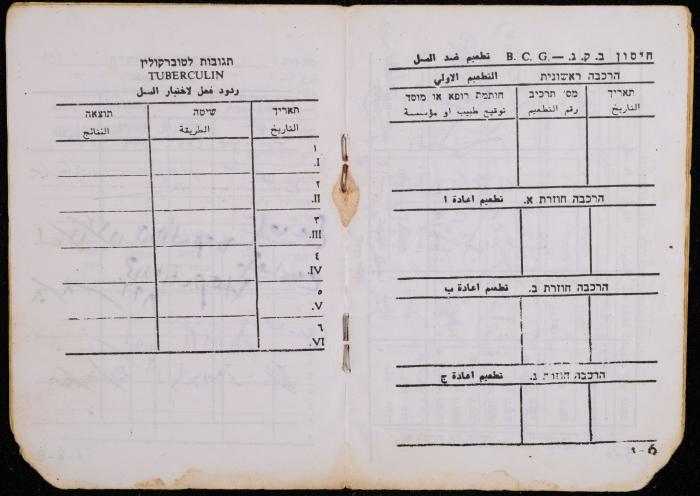 חיסון ב. ק. ג. — B. C. G. تطعيم ضد السل
הרכבה ראשונית التطعيم الاولي
תאריך מס׳ תרכיב חותמת רופא או מוסד
التاريخ رقم التطعيم توقيع طبيب او مؤسسة
הרכבה חוזרת א. تطعيم اعادة ا
הרכבה חוזרת ב. تطعيم اعادة ب
הרכבה חוזרת ג. تطعيم اعادة ج
תגובות לטוברקולין
TUBERCULIN
ردود فعل لاختبار السل
תאריך שיטה תוצאה
التاريخ الطريقة النتائج
١
I.
٢
II.
٣
III.
٤
IV.
٥
V.
٦
VI.